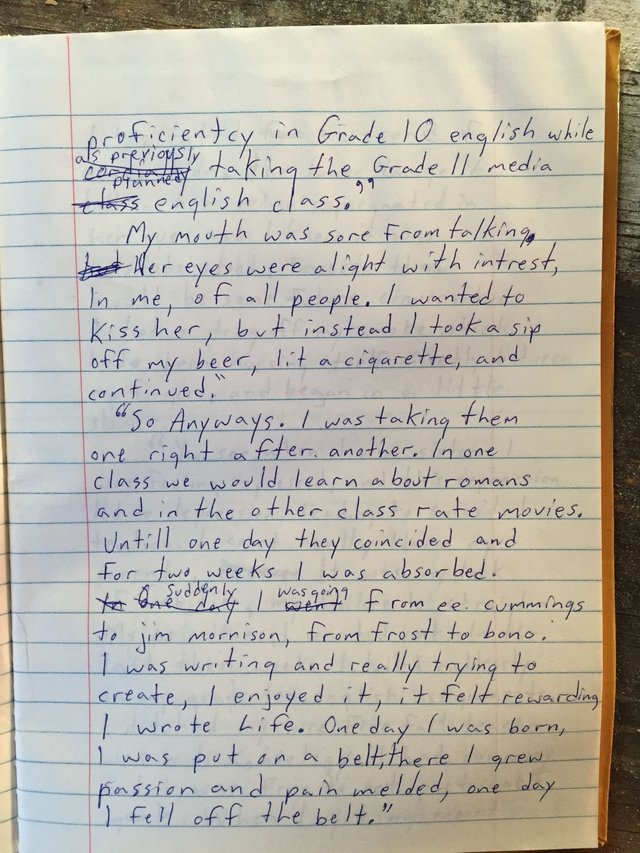 proficientcy in Grade 10 english while
as previously
planned taking the Grade 11 media
class english class."
My mouth was sore from talking,
but Her eyes were alight with intrest,
In me, of all people. I wanted to
kiss her, but instead I took a sip
off my beer, lit a cigarette, and
continued."
"So Anyways. I was taking them
one right after. another. In one
class we would learn about romans
and in the other class rate movies.
Untill one day they coincided and
for two weeks I was absorbed.
suddenly was going
One day I went from ee. cummings
to jim morrison, from frost to bono.
I was writing and really trying to
create, I enjoyed it, it felt rewarding
I wrote Life. One day I was born,
I was put on a belt, there I grew
passion and pain melded, one day
I fell off the belt."